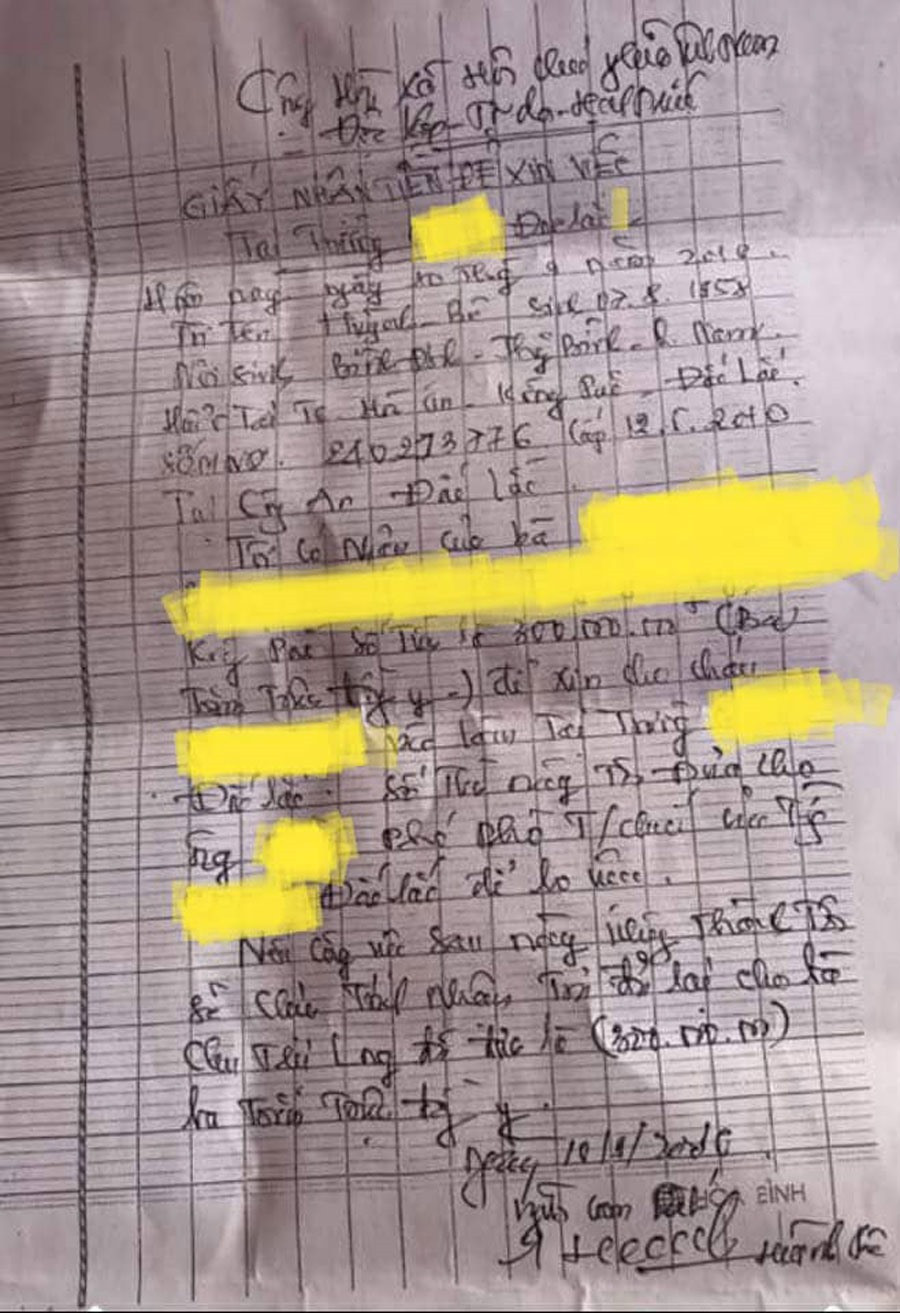 Cộng Hòa Xã Hội Chủ nghĩa Việt Nam
Độc lập - Tự do - Hạnh Phúc
GIẤY NHẬN TIỀN ĐỂ XIN VIỆC
Tại Trường Đắc Lắc
Hôm nay ngày 10 tháng 9 năm 2016.
Tôi tên Huỳnh Bê sinh 07.8.1958
Nơi sinh Bình - Thg Bình - Q. Nam.
Hiện Tại Tt An - Krông Păc - Đắc Lắc.
Số CMND. 240273776 Cấp 12.5.2010
Tại Công An Đắc Lắc.
Tôi có Nhận của bà
Krg Păc số Tiền là 300.000.000 đ (Ba
Trăm Triệu đồng y -) để xin cho cháu
vào làm Tại Trường
Đắc Lắc. Số Tiền này Tôi Đưa cho
Ông phó phò T/chức của
Đắc Lắc để lo việc.
Nếu công việc sau này không Thành Tôi
sẽ chịu Trách Nhiệm Trả đủ lại cho bà
(300.000.000)
ba Trăm Triệu đồng y.
Ngày 10/9/2016
Người cam
BÌNH
Huỳnh Bê